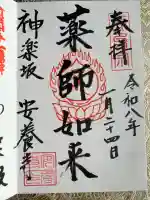 奉拝
令和八年
一月二十四日
薬師如来
神楽坂
安養寺